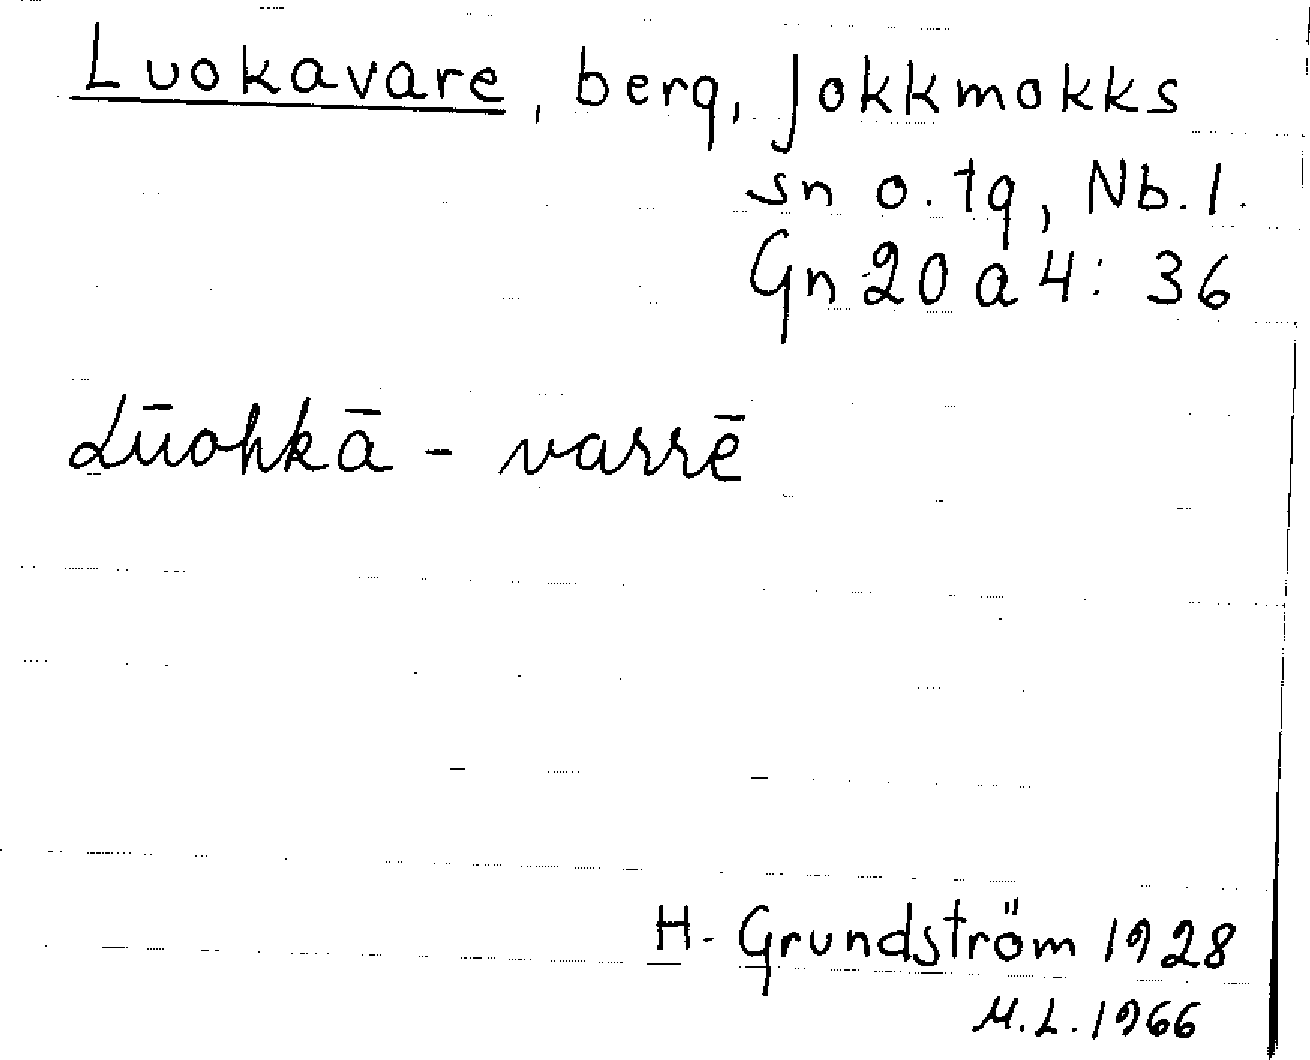 Luokavare, berg, Jokkmokks
sn o. tg, Nb. l.
Gn 20 a 4: 36
Lūohkā - varrē
H. Grundström 1928
M.L. 1966